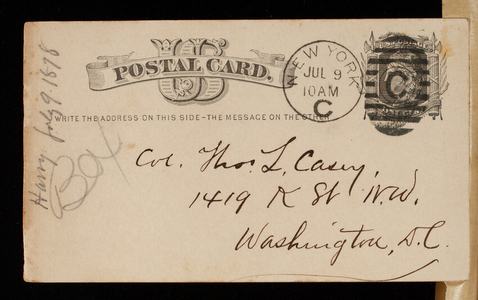 US
POSTAL CARD.
WRITE THE ADDRESS ON THIS SIDE - THE MESSAGE ON THE OTHER
NEW YORK
JUL 9
10AM
C
C
Col. Thos. L. Casey,
1419 K St N.W.
Washington, D.C.
Harry July 9. 1878